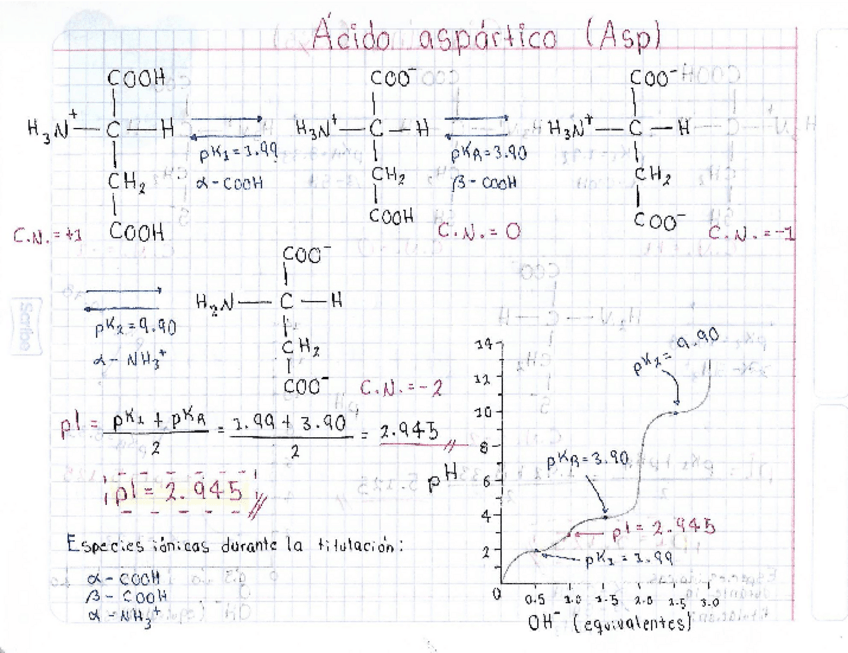 Ácido aspártico (Asp)
COOH
H₃N⁺—C—H
CH₂
COOH
C.N. = +1
pK₁ = 1.99
α-COOH
COO⁻
H₃N⁺—C—H
CH₂
COOH
C.N. = 0
pKR = 3.90
β-COOH
COO⁻
H₃N⁺—C—H
CH₂
COO⁻
C.N. = -1
pK₂ = 9.90
α-NH₃⁺
COO⁻
H₂N—C—H
CH₂
COO⁻
C.N. = -2
pI = pK₁ + pKR / 2 = 1.99 + 3.90 / 2 = 2.945
pI = 2.945
Especies iónicas durante la titulación:
α-COOH
β-COOH
α-NH₃⁺
14
12
10
8
6
4
2
0
pH
pK₂ = 9.90
pKR = 3.90
pI = 2.945
pK₁ = 1.99
0.5 1.0 1.5 2.0 2.5 3.0
OH⁻ (equivalentes)
Scribe